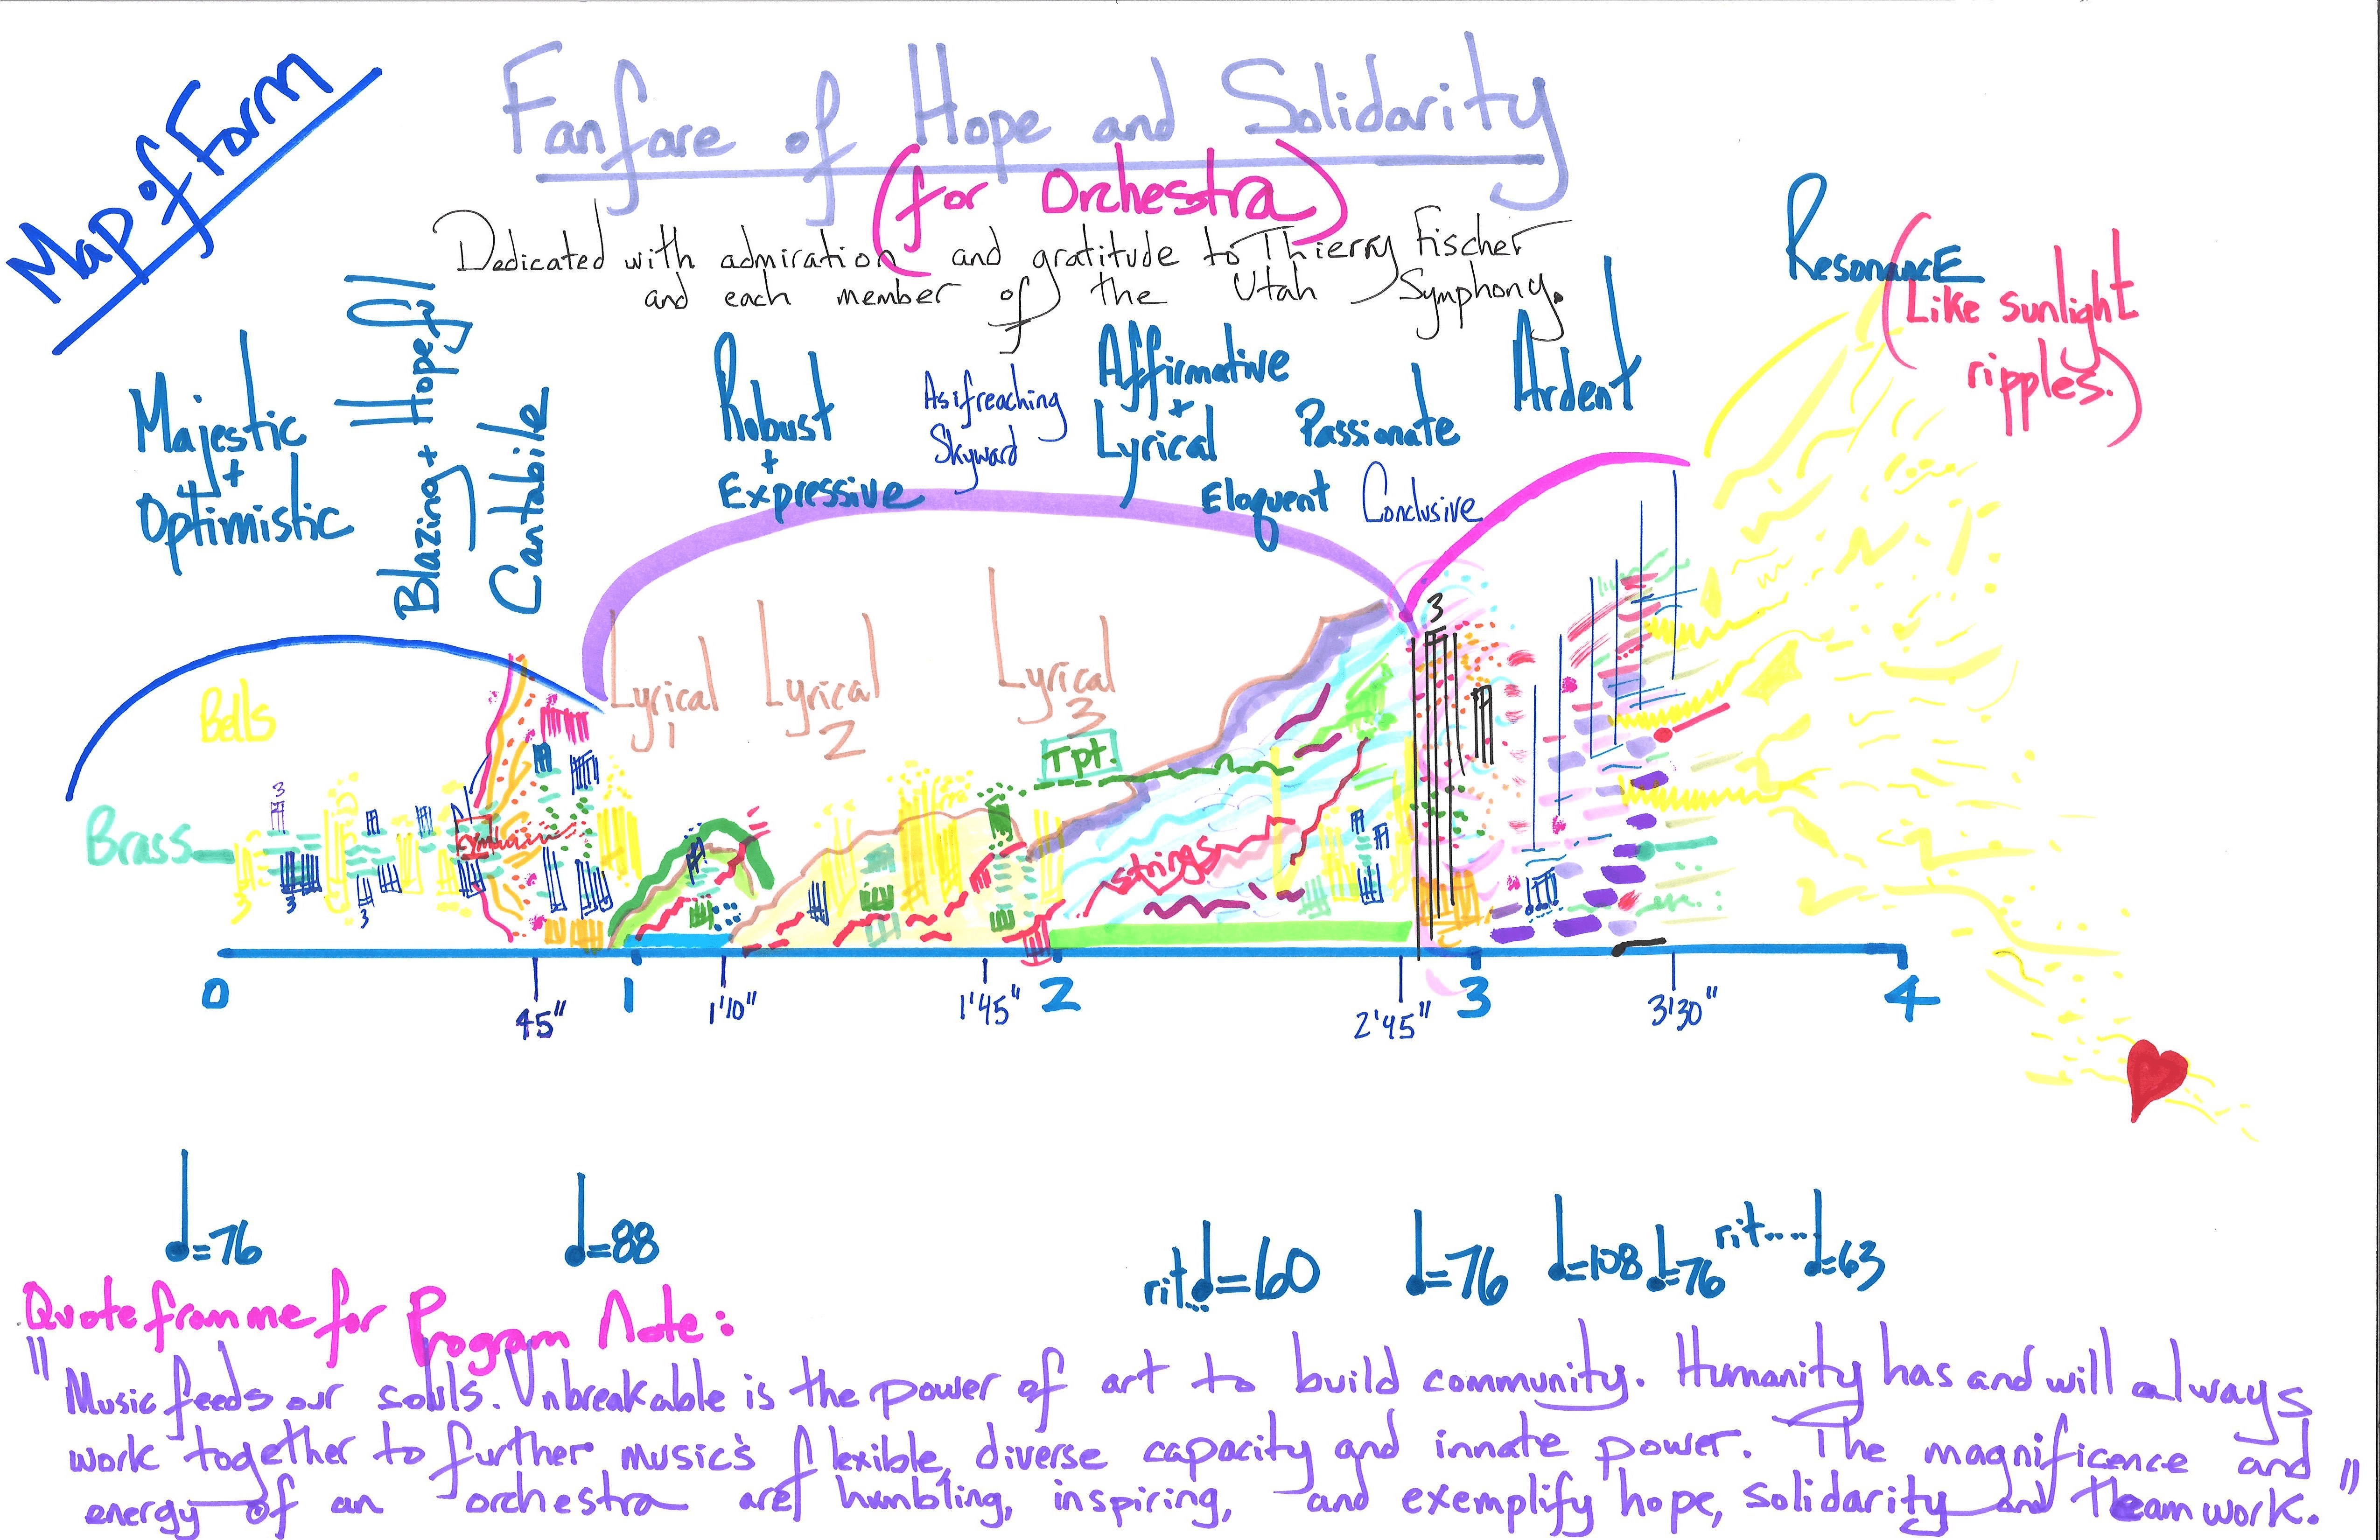 Map of Form
Fanfare of Hope and Solidarity
(for Orchestra)
Dedicated with admiration and gratitude to Thierry Fischer
and each member of the Utah Symphony.
Resonance
(Like sunlight
ripples.)
Majestic
+
Optimistic
Blazing + Hopeful
Cantabile
Robust
+
Expressive
As if reaching
Skyward
Affirmative
+
Lyrical
Eloquent
Passionate
Conclusive
Ardent
Bells
Brass
Lyrical
1
Lyrical
2
Lyrical
3
Tpt.
strings
3
3
3
3
3
0
45"
1
1'10"
1'45"
2
2'45"
3
3'30"
4
♩=76
♩=88
rit... ♩=60
♩=76
♩=108
♩=76
rit.... ♩=63
Quote from me for Program Note:
"Music feeds our souls. Unbreakable is the power of art to build community. Humanity has and will always
work together to further music's flexible, diverse capacity and innate power. The magnificence and
energy of an orchestra are humbling, inspiring, and exemplify hope, solidarity and teamwork."